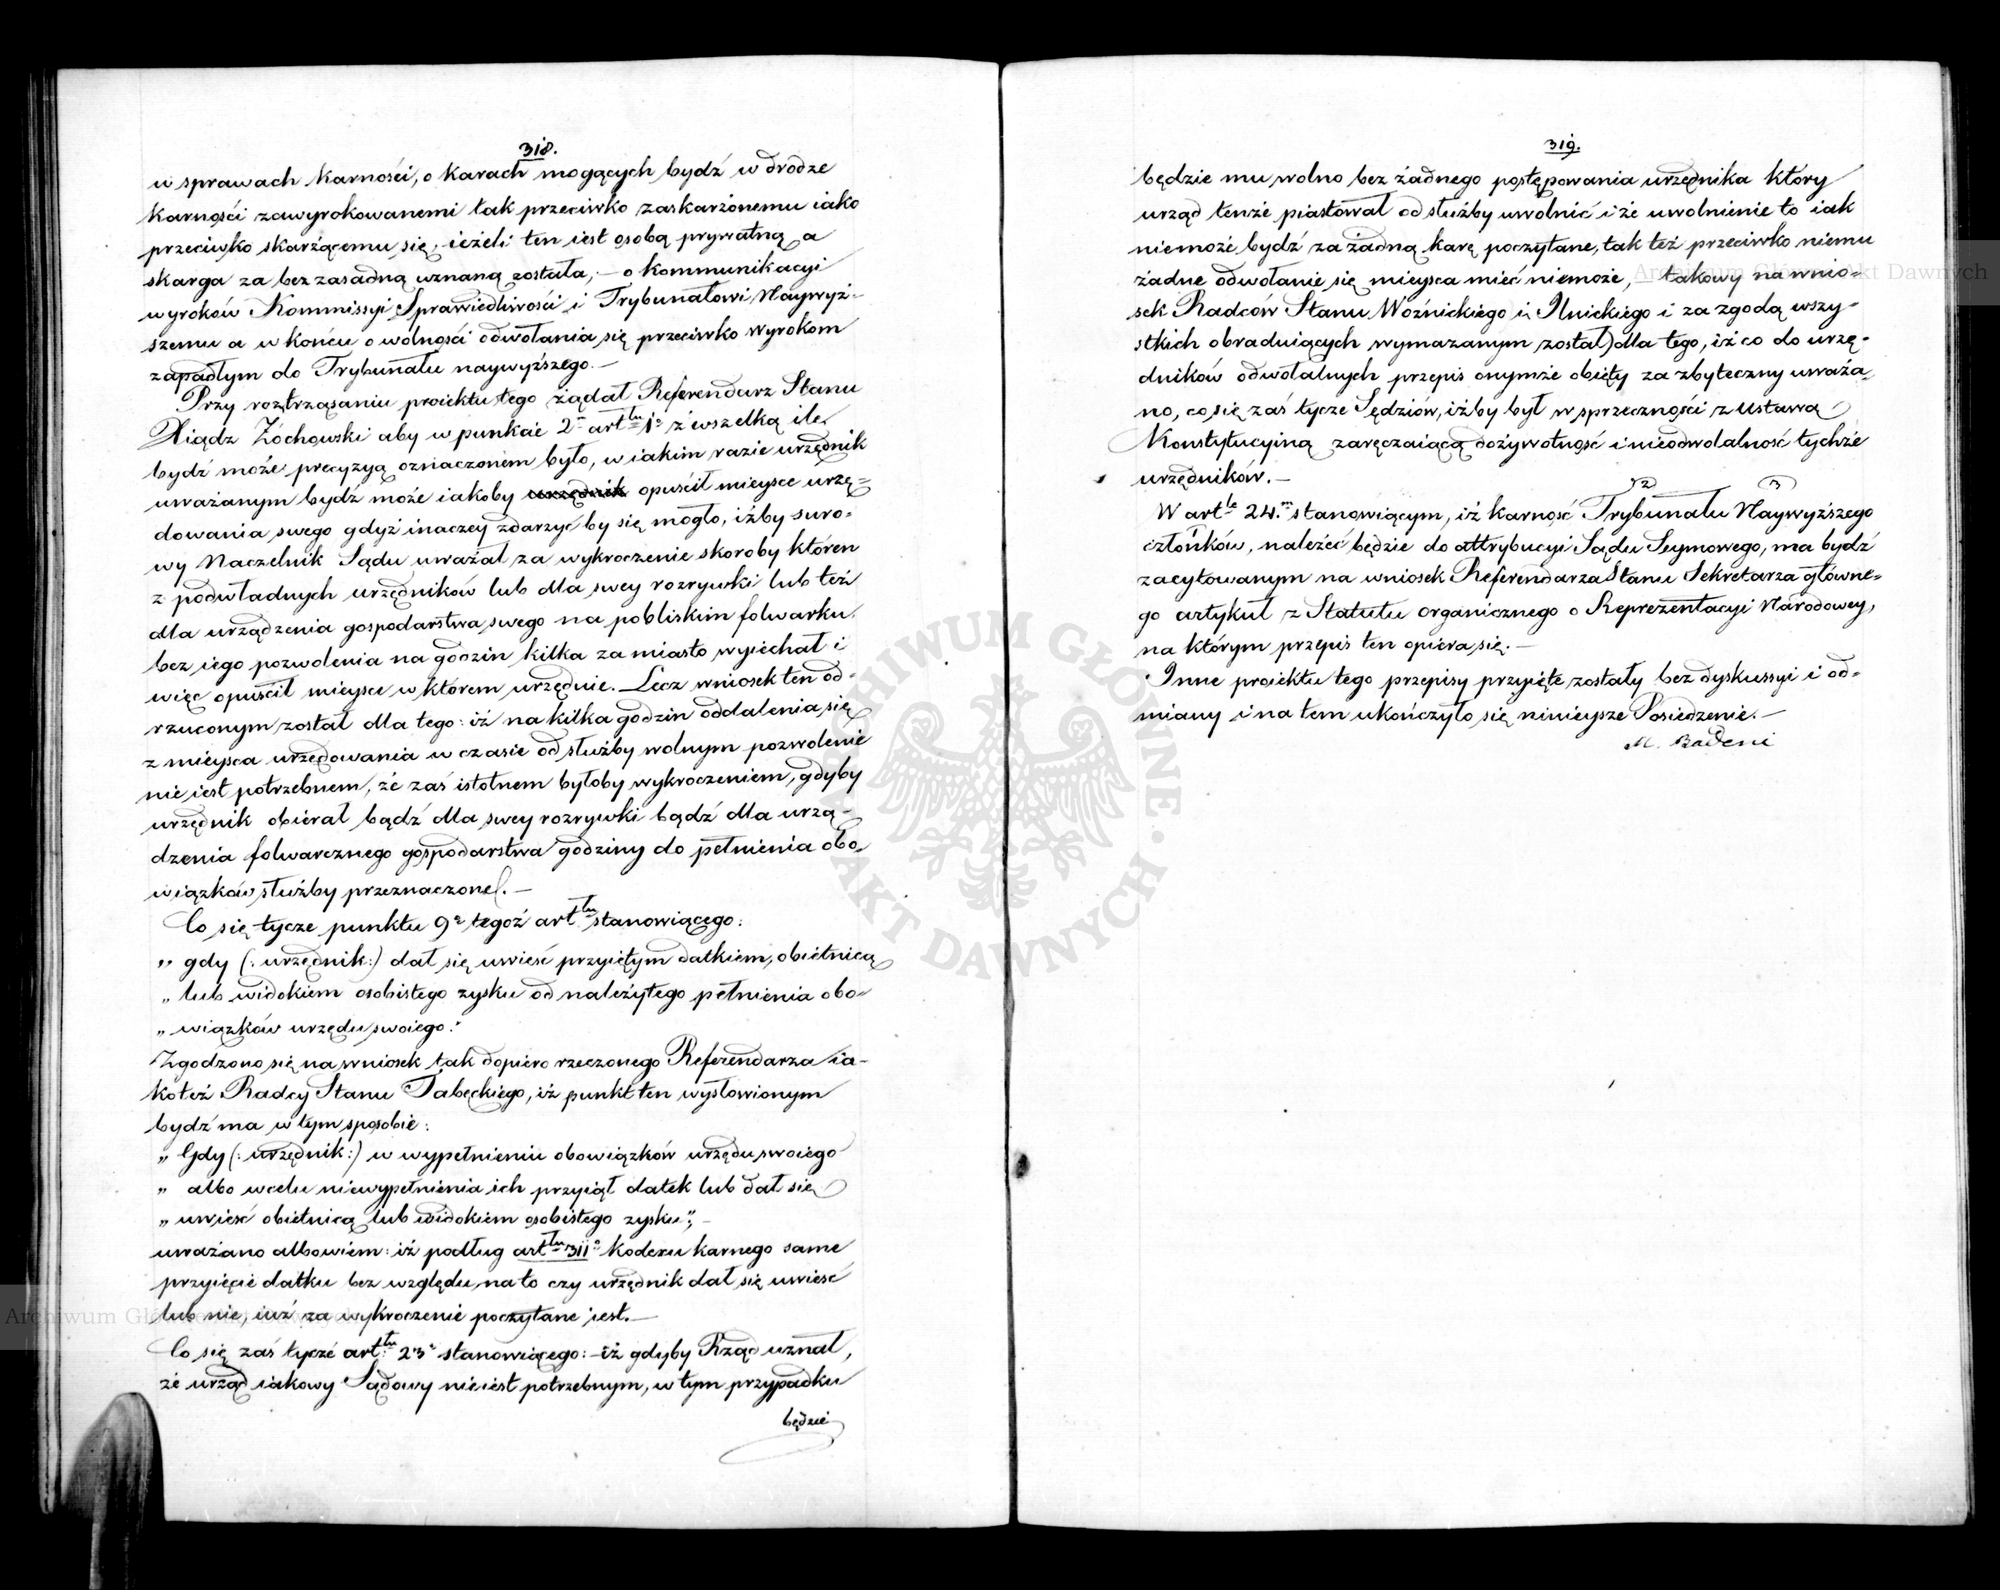 318.
w sprawach karności, o karach mogących bydź w drodze
karności zawyrokowanemi tak przeciwko zaskarżonemu iako
przeciwko skarżącemu się, ieżeli ten iest osobą prywatną a
skarga za bezzasadną uznaną została, — o kommunikacyi
wyroków Kommissyi Sprawiedliwości i Trybunałowi Naywyż-
szemu a w końcu o wolności odwołania się przeciwko wyrokom
zapadłym do Trybunału naywyższego. —
Przy roztrząsaniu proiektu tego żądał Referendarz Stanu
Xiądz Żochowski aby w punkcie 2° art tu 1° z wszelką ile
bydź może precyzyą oznaczonem było, w iakim razie urzędnik
uważanym bydź może iakoby urzędnik opuścił mieysce urzę-
dowania swego gdyż inaczey zdarzyć by się mogło, iżby suro-
wy Naczelnik Sądu uważał za wykroczenie skoroby któren
z podwładnych urzędników lub dla swey rozrywki lub też
dla urządzenia gospodarstwa swego na pobliskim folwarku
bez iego pozwolenia na godzin kilka za miasto wyiechał i
więc opuścił mieysce w którem urzęduie. Lecz wniosek ten od-
rzuconym został dla tego: iż na kilka godzin oddalenia się
z mieysca urzędowania w czasie od służby wolnym pozwolenie
nie iest potrzebnem, że zaś istotnem byłoby wykroczeniem, gdyby
urzędnik obierał bądź dla swey rozrywki bądź dla urzą-
dzenia folwarcznego gospodarstwa godziny do pełnienia obo-
wiązków służby przeznaczone. —
Co się tycze punktu 9° tegoż art tu stanowiącego:
„ gdy (: urzędnik:) dał się uwieść przyiętym datkiem, obietnicą
„ lub widokiem osobistego zysku od należytego pełnienia obo-
„ wiązków urzędu swoiego."
Zgodzono się na wniosek tak dopiero rzeczonego Referendarza ia-
koteż Radcy Stanu Tabęckiego, iż punkt ten wysłowionym
bydź ma w tym sposobie:
„ Gdy (: urzędnik:) w wypełnieniu obowiązków urzędu swoiego
„ albo w celu niewypełnienia ich przyiął datek lub dał się
„ uwieść obietnicą lub widokiem osobistego zysku", —
uważano albowiem: iż podług art tu 311° Kodexu karnego same
przyięcie datku bez względu na to czy urzędnik dał się uwieść
lub nie, iuż za wykroczenie poczytane iest. —
Co się zaś tycze art tu 23° stanowiącego: — iż gdyby Rząd uznał,
że urząd iakowy Sądowy nie iest potrzebnym, w tym przypadku
będzie
319.
będzie mu wolno bez żadnego postępowania urzędnika który
urząd tenże piastował od służby uwolnić i że uwolnienie to iak
niemoże bydź za żadną karę poczytane, tak też przeciwko niemu
żadne odwołanie się mieysca mieć niemoże, — takowy na wnio-
sek Radców Stanu Woźnickiego i Ilnickiego i za zgodą wszy-
stkich obraduiących wymazanym został) dla tego, iż co do urzę-
dników odwołalnych przepis onymże obięty za zbyteczny uważa-
no, co się zaś tycze Sędziów, iżby był w sprzeczności z Ustawą
Konstytucyiną zaręczaiącą dożywotność i nieodwołalność tychże
urzędników. —
2 3
W art le 24. m stanowiącym, iż karność Trybunału Naywyższego
1
członków, należeć będzie do attrybucyi Sądu Seymowego, ma bydź
zacytowanym na wniosek Referendarza Stanu Sekretarza główne-
go artykuł z Statutu organicznego o Reprezentacyi Narodowey,
na którym przepis ten opiera się. —
Inne proiektu tego przepisy przyięte zostały bez dyskussyi i od-
miany i na tem ukończyło się ninieysze Posiedzenie. —
M. Badeni
ARCHIWUM GŁÓWNE · AKT DAWNYCH ·
Archiwum Główne Akt Dawnych